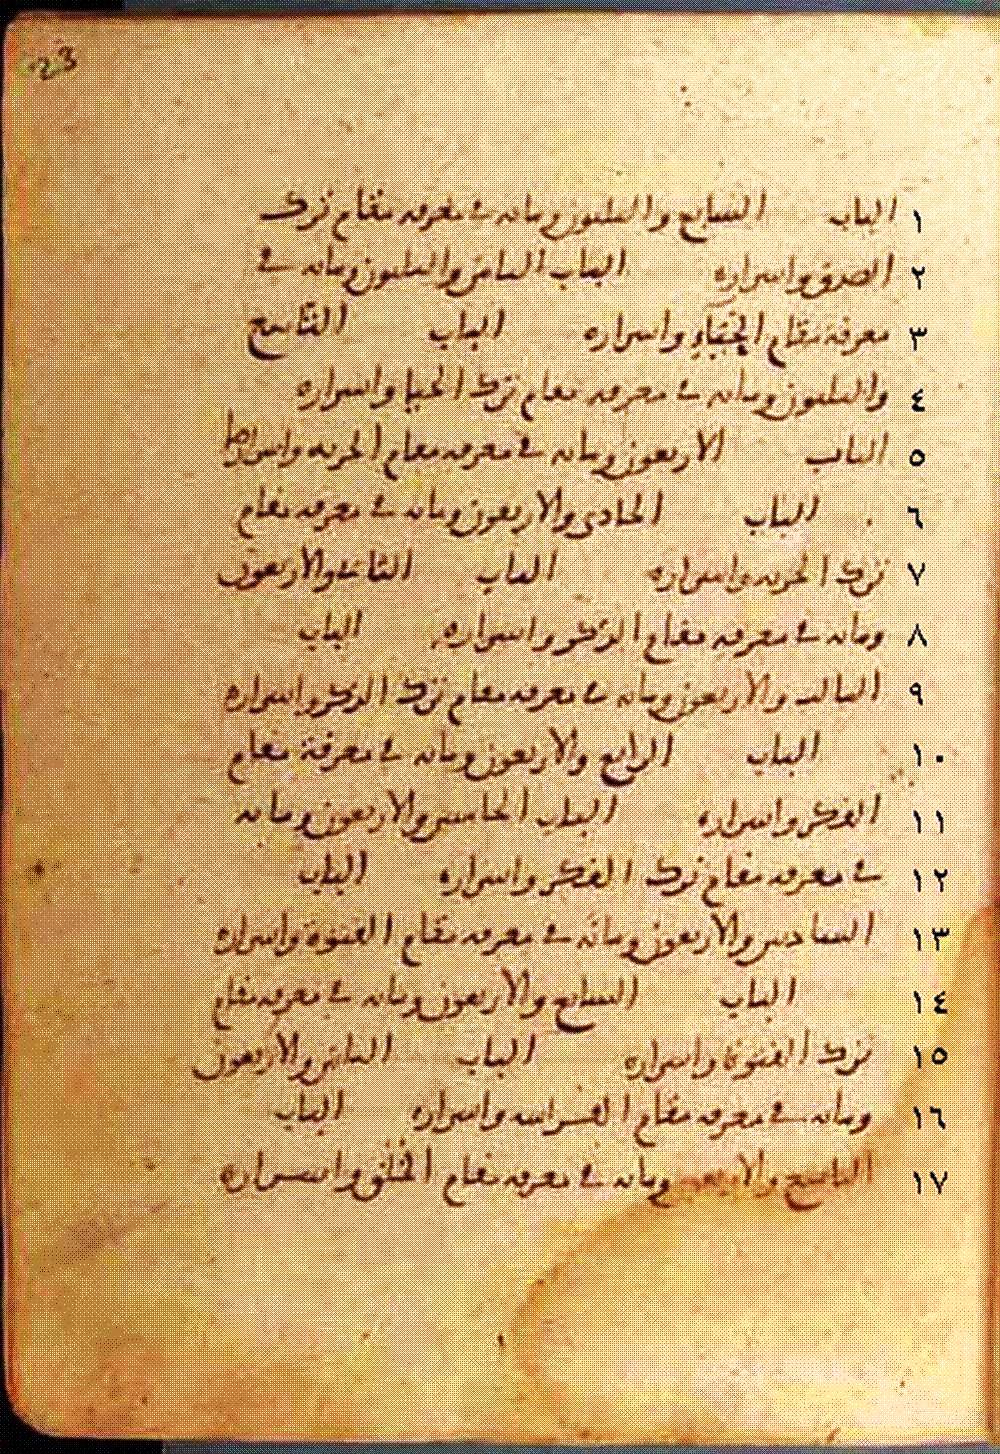 23
١ الباب السابع والثلثون ومائه في معرفه مقام ترك
٢ الصدق واسراره الباب الثامن والثلثون ومائه في
٣ معرفة مقام الحياء واسراره الباب التاسع
٤ والثلثون ومائه في معرفه مقام ترك الحيا واسراره
٥ الباب الاربعون ومائه في معرفه مقام الحريه واسرارها
٦ الباب الحادي والاربعون ومائه في معرفه مقام
٧ ترك الحريه واسراره الباب الثاني والاربعون
٨ ومائه في معرفه مقام الذكر واسراره الباب
٩ الثالث والاربعون ومائه في معرفه مقام ترك الذكر واسراره
١٠ الباب الرابع والاربعون ومائه في معرفة مقام
١١ الفكر واسراره الباب الخامس والاربعون ومائه
١٢ في معرفه مقام ترك الفكر واسراره الباب
١٣ السادس والاربعون ومائه في معرفه مقام الفتوة واسراره
١٤ الباب السابع والاربعون ومائه في معرفه مقام
١٥ ترك الفتوة واسراره الباب الثامن والاربعون
١٦ ومائه في معرفه مقام الفراسه واسراره الباب
١٧ التاسع والاربعون ومائه في معرفه مقام الخلق واسراره